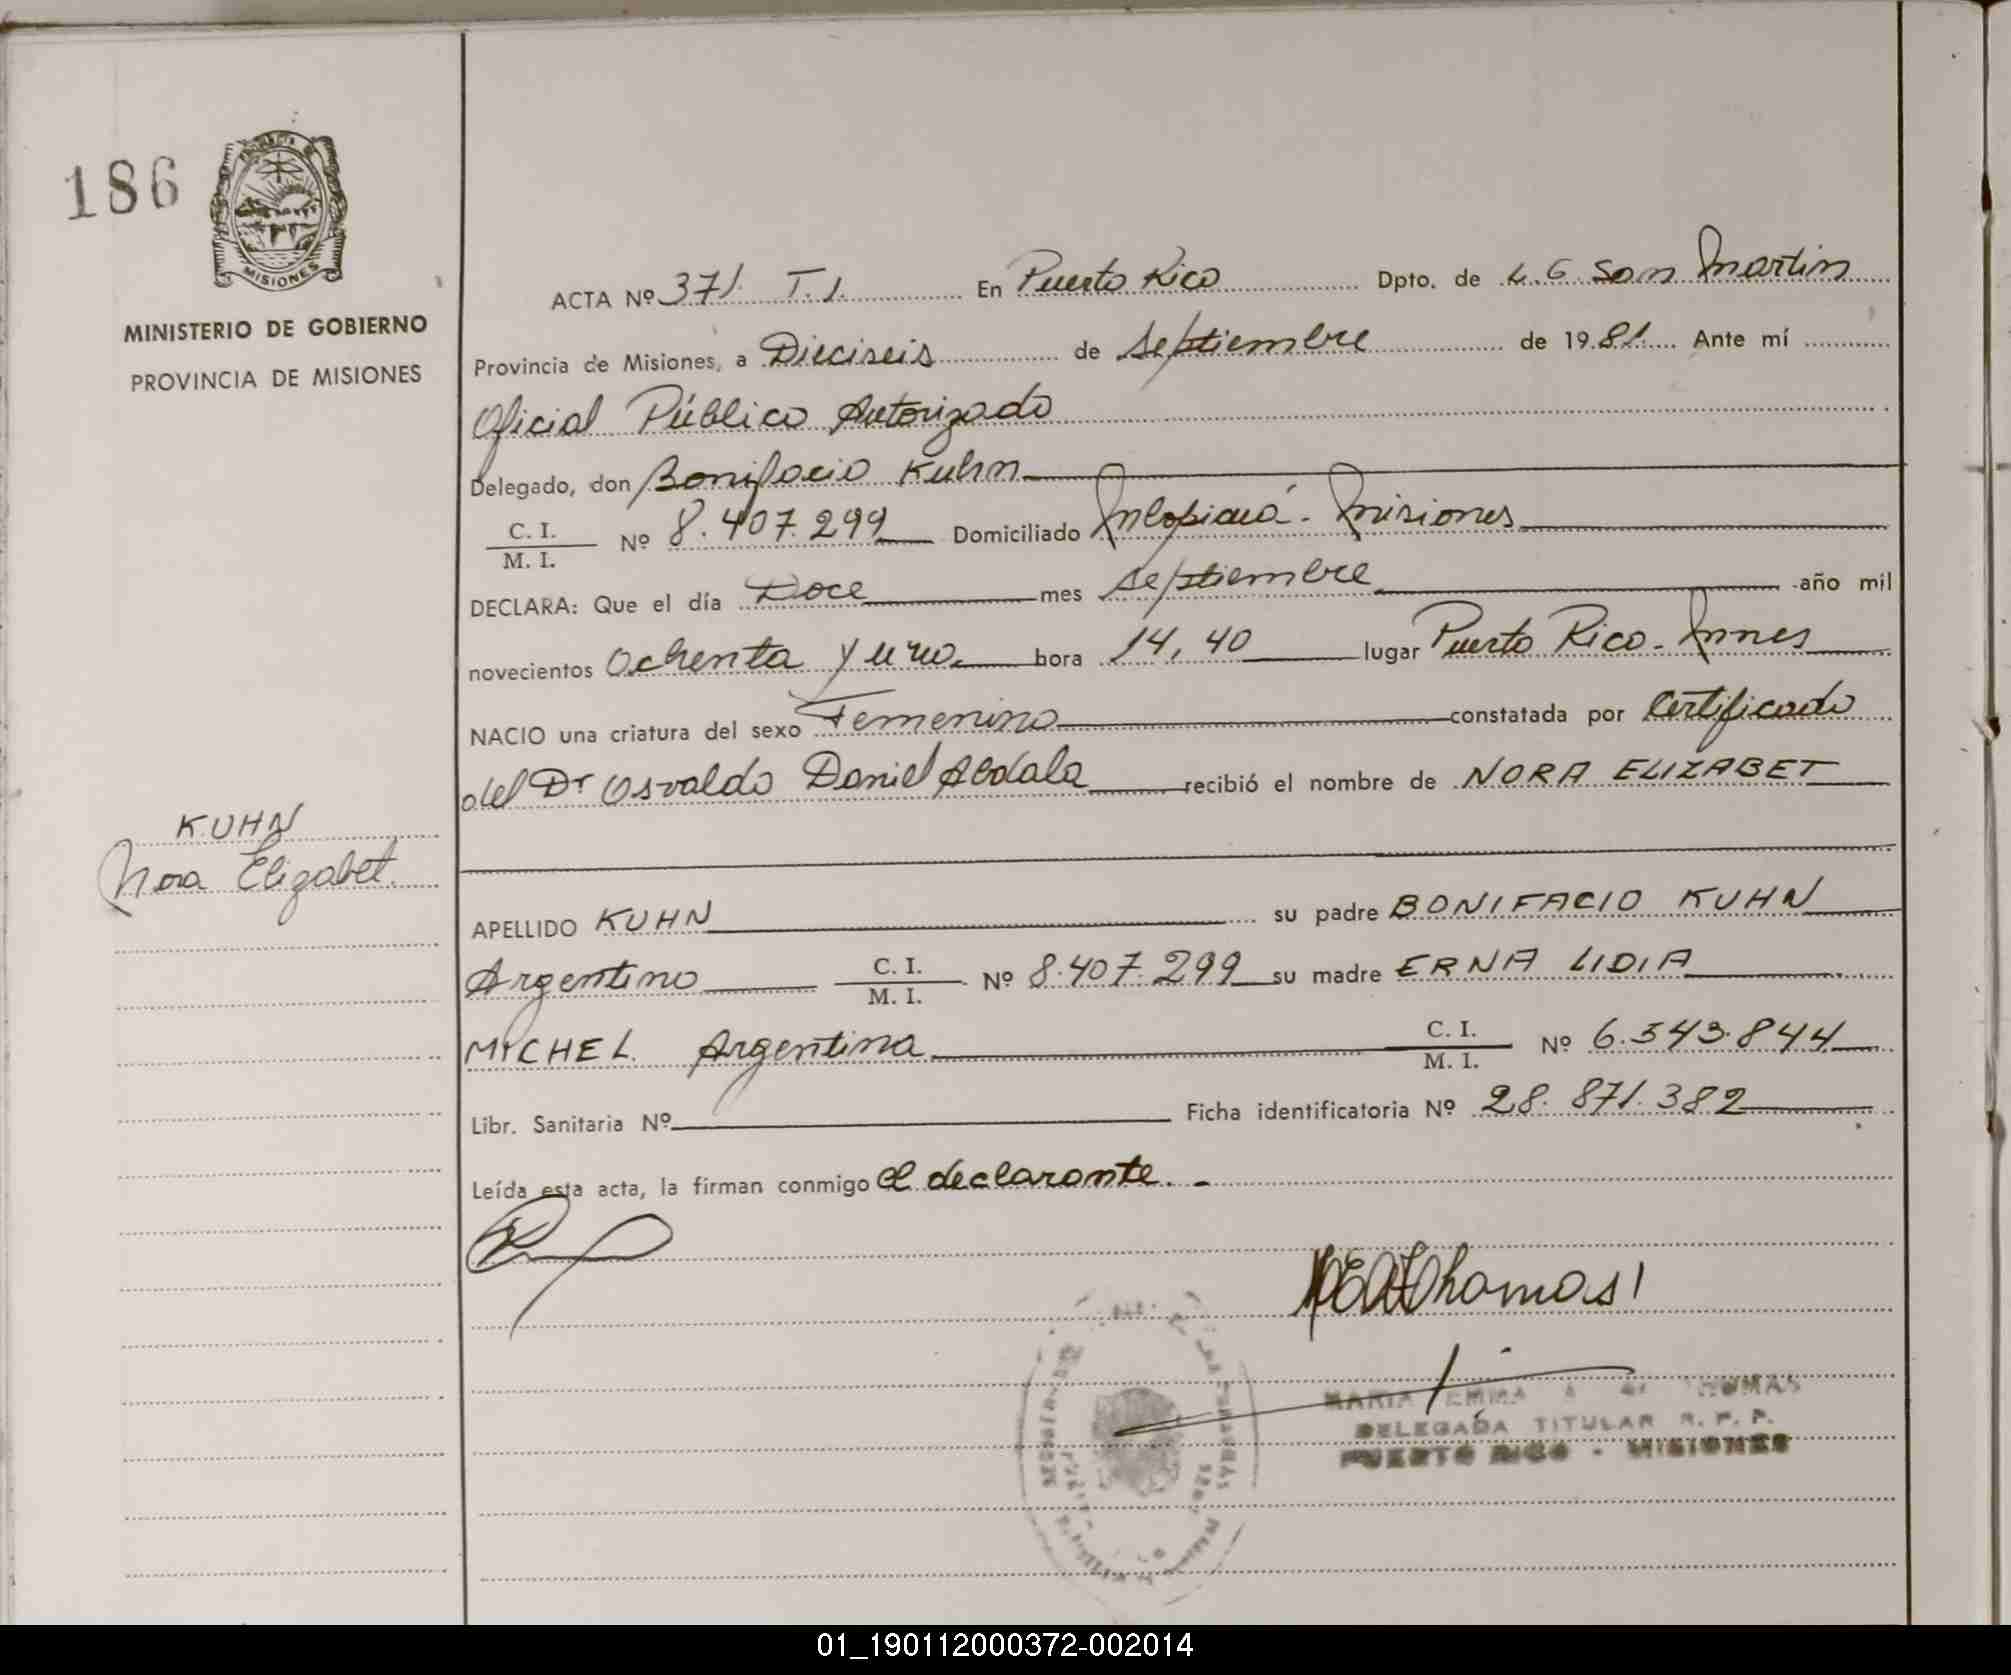 186
MISIONES
MINISTERIO DE GOBIERNO
PROVINCIA DE MISIONES
KUHN
Nora Elizabet.
ACTA Nº 371. T.1. En Puerto Rico Dpto. de L.G. San Martin
Provincia de Misiones, a Dieciseis de Septiembre de 1981. Ante mí
Oficial Público Autorizado
Delegado, don Bonifacio Kuhn
C. I.
M. I. Nº 8.407.299 Domiciliado Misiones
DECLARA: Que el día Doce mes septiembre año mil
novecientos Ochenta y uno hora 14,40 lugar Puerto Rico - Mnes
NACIO una criatura del sexo Femenino constatada por Certificado
del Dr Osvaldo Daniel Abdala recibió el nombre de NORA ELIZABET
APELLIDO KUHN su padre BONIFACIO KUHN
Argentino C. I. M. I. Nº 8.407.299 su madre ERNA LIDIA
MICHEL Argentina C. I. M. I. Nº 6.343.844
Libr. Sanitaria Nº Ficha identificatoria Nº 28.871.382
Leída esta acta, la firman conmigo el declarante.-
Thomas
MARIA EMMA A de THOMAS
DELEGADA TITULAR R. P. P.
PUERTO RICO - MISIONES
01_190112000372-002014